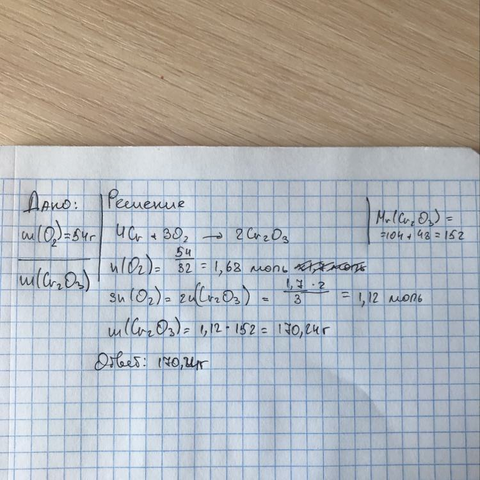 Дано:
m(O₂)=54г
m(Cr₂O₃)
Решение
4Cr + 3O₂ → 2Cr₂O₃
n(O₂)= 54/32 = 1,68 моль
3n(O₂) = 2n(Cr₂O₃) = 1,7·2/3 = 1,12 моль
m(Cr₂O₃)= 1,12·152 = 170,24г
Ответ: 170,24г
Mr(Cr₂O₃)=
=104+48=152